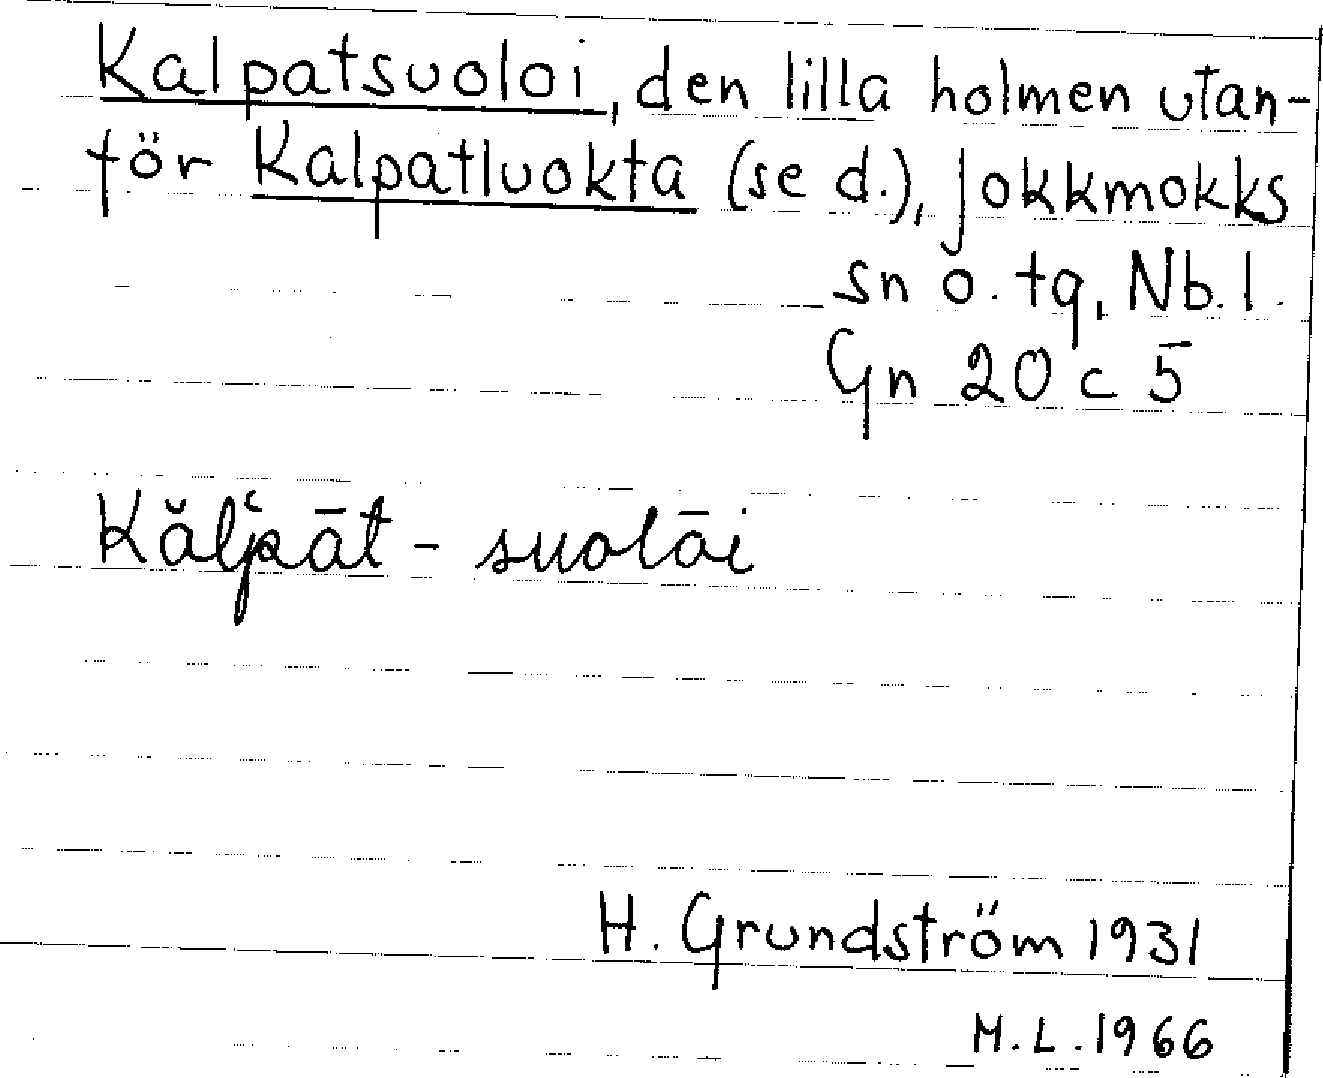 Kalpatsuoloi, den lilla holmen utan-
för Kalpatluokta (se d.), Jokkmokks
sn o. tg, Nb. l.
Gn 20 c 5
Kălʻpāt - suolāi
H. Grundström 1931
M.L. 1966